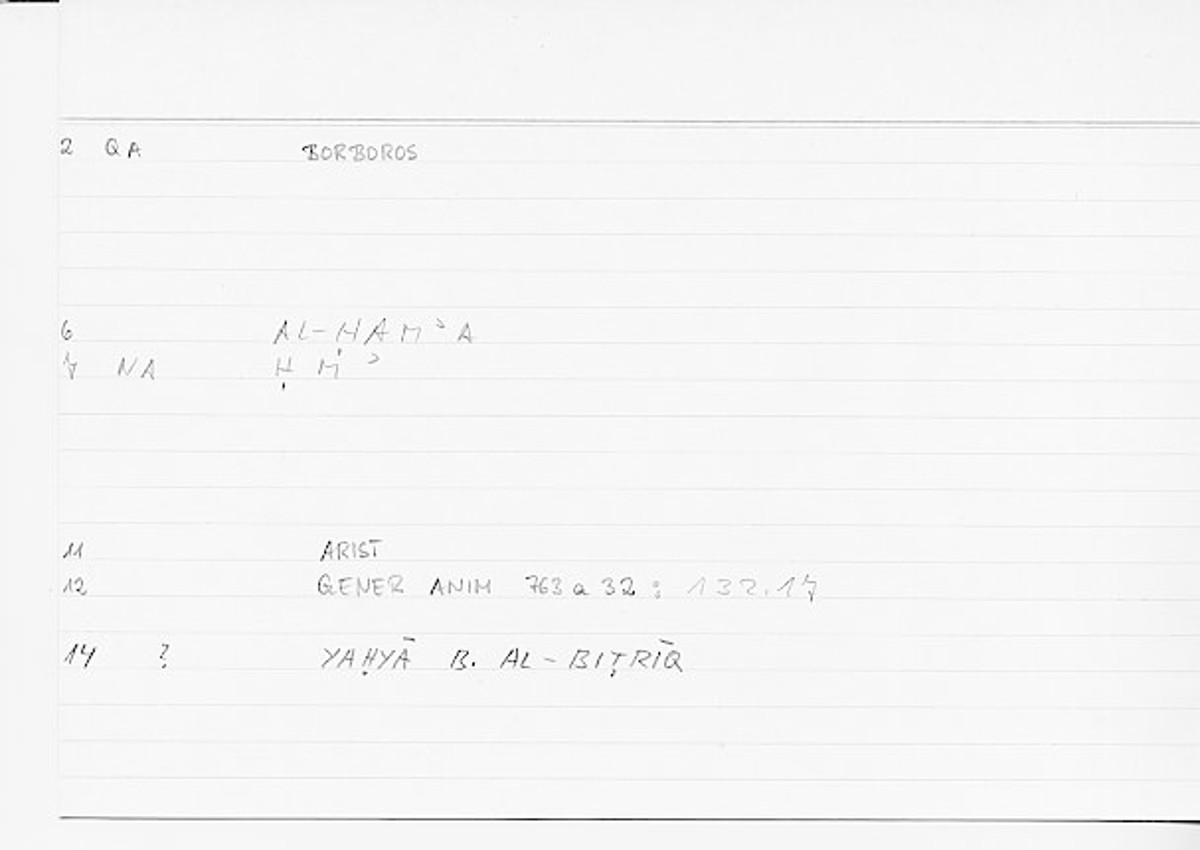 2 QA BORBOROS
6 AL-ḤAMʾA
7 NA Ḥ M ʾ
11 ARIST
12 GENER ANIM 763 a 32 : 132.17
14 ? YAḤYĀ B. AL-BIṬRĪQ